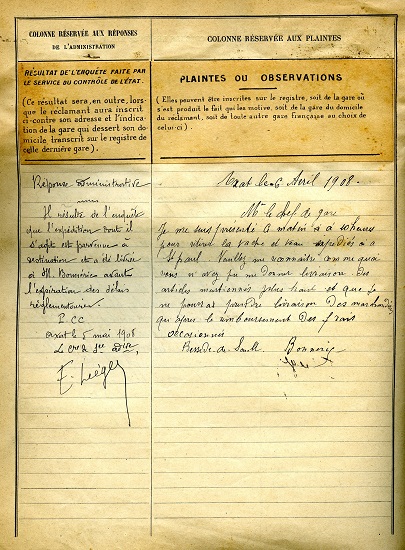 COLONNE RÉSERVÉE AUX RÉPONSES
DE L'ADMINISTRATION
RÉSULTAT DE L'ENQUÊTE FAITE PAR
LE SERVICE DU CONTRÔLE DE L'ÉTAT.
(Ce résultat sera, en outre, lors-
que le réclamant aura inscrit
ci-contre son adresse et l'indica-
tion de la gare qui dessert son do-
micile transcrit sur le registre de
celle dernière gare).
Réponse administrative
Il résulte de l'enquête
que l'expédition dont il
s'agit est parvenue à
destination et a été livrée
à M. avant
l'expiration des délais
réglementaires.
P.CC
axat le 5 mai 1908
Le
COLONNE RÉSERVÉE AUX PLAINTES
PLAINTES OU OBSERVATIONS
(Elles peuvent être inscrites sur le registre, soit de la gare où
s'est produit le fait qui les motive, soit de la gare du domicile
du réclamant, soit de toute autre gare française au choix de
celui-ci).
Axat le 6 Avril 1908.
Mr le chef de gare
Je me suis présenté ce matin à heures
pour retirer la vache et veau expédiés à
St paul Veuillez me
vous n'avez pu me donner livraison des
articles mentionnés plus haut et que je
ne pourrai prendre livraison des marchandises
qu'après le remboursement des frais
occasionnés